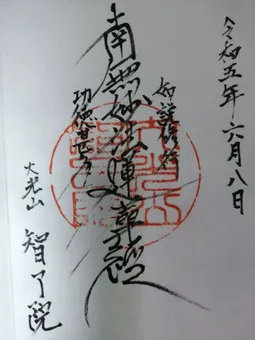 令和五年六月八日
如説修行
南無妙法蓮華経
功徳甚多
大光山
智了院